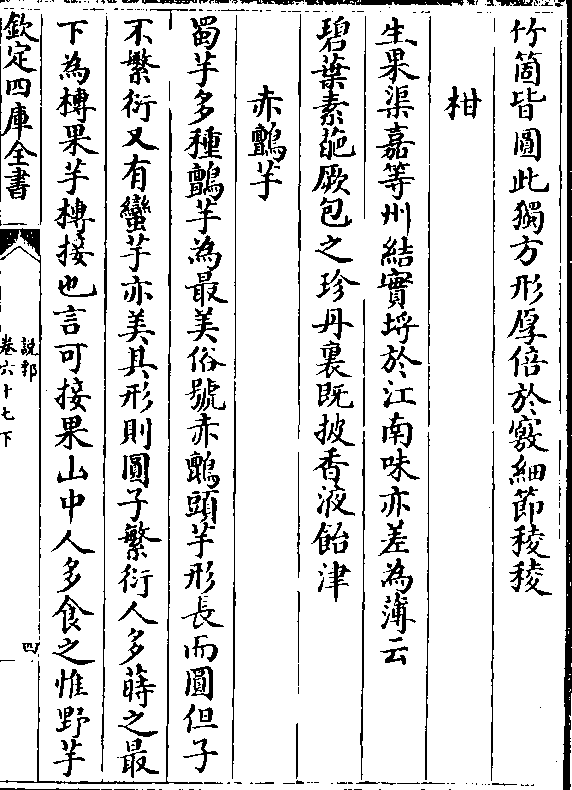 竹箇皆圓此獨方形厚倍於竅細節稜稜
柑
生果渠嘉等州結實埒於江南味亦差為薄云
碧葉素葩厥包之珍丹裏既披香液飴津
赤鸇芋
蜀芋多種鸇芋為最美俗號赤鸇頭芋形長而圓但子
不繁衍又有蠻芋亦美其形則圓子繁衍人多蒔之最
下為榑果芋榑接也言可接果山中人多食之惟野芋
欽定四庫全書
說郛
卷六十七下
四